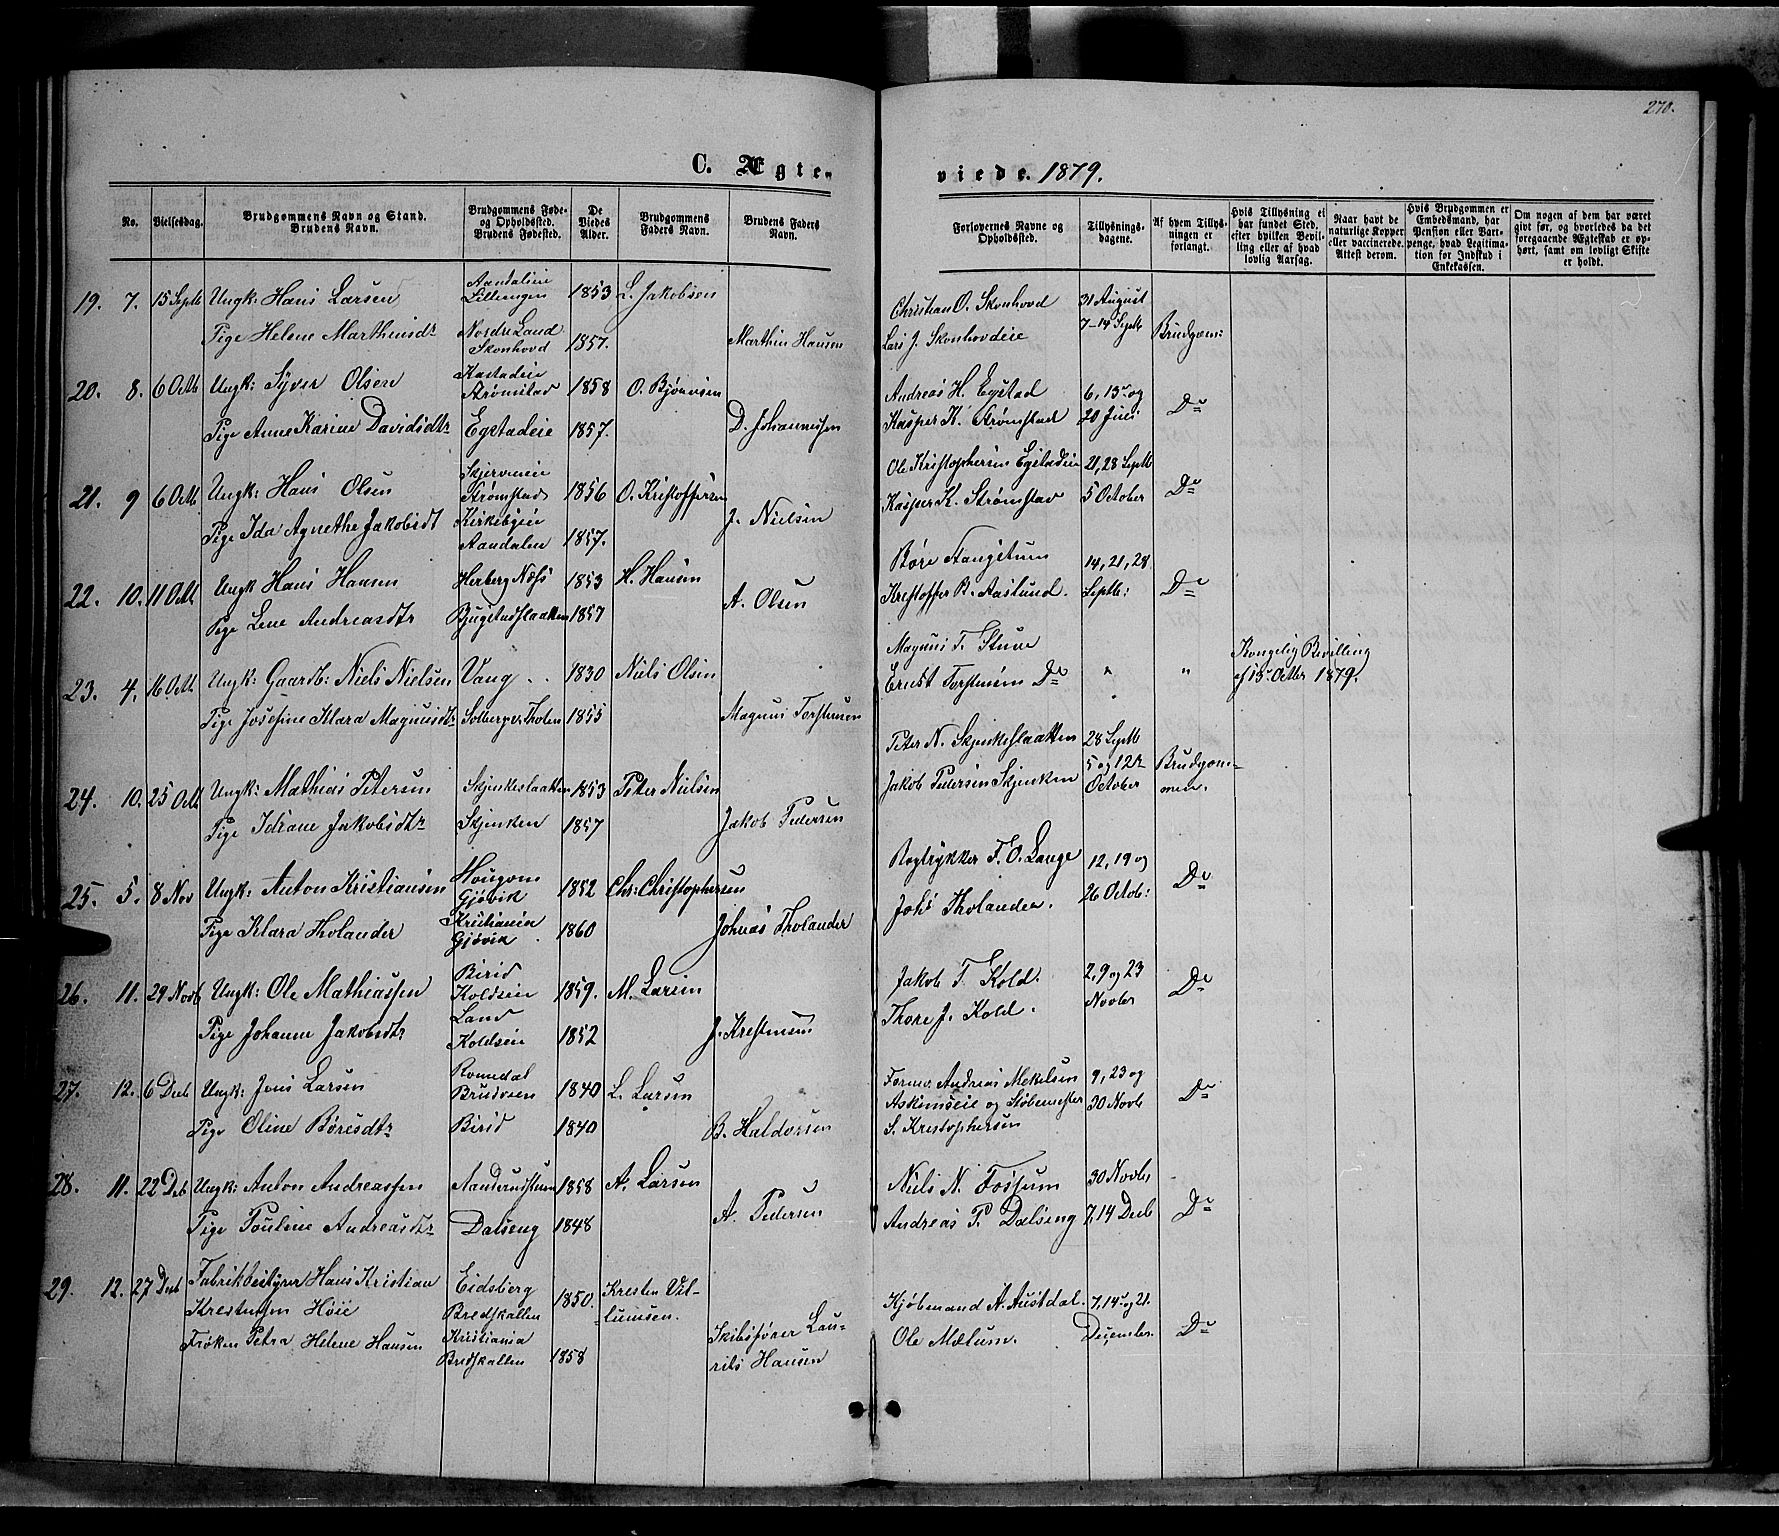 270.
C. Ægte-
viede. 1879.
No.
Vielsesdag.
Brudgommens Navn og Stand.
Brudens Navn.
Brudgommens Føde-
og Opholdssted.
Brudens Fødested.
De
Viedes
Alder.
Brudgommens
Faders Navn.
Brudens Faders
Navn.
Forlovernes Navne og
Opholdssted.
Tillysnings-
dagene.
Af hvem Tillys-
ningen er
forlangt.
Hvis Tillysning ei
har fundet Sted,
efter hvilken Bevil-
ling eller af hvad
lovlig Aarsag.
Naar havt de
naturlige Kopper
eller vaccinerede.
Attest derom.
Hvis Brudgommen er
Embedsmand, har
Pension eller Vart-
penge, hvad Legitima-
tion for Indskud i
Enkekassen.
Om nogen af dem har været
givt før, og hvorledes da det
foregaaende Ægteskab er op-
hørt, samt om lovligt Skifte
er holdt.
19. 7. 15 Septb Ungk: Hans Larsen
Pige Helene Marthinsdtr
Nordre Land
Skonhovd
1853
1857.
L. Jakobsen
Marthin Hansen
Christian O. Skonhovd
Lars J. Skonhovdeie
31 August
7-14 Septb
Brudgom:
20. 8. 6 Octb Ungk: Syver Olsen
Pige Anne Karine Davidsdtr
Kastadeie
Strømstad
Egstadeie
1858
1857.
O. Bjørnsen
D. Johannessen
Andreas H. Egstad
Kasper K. Strømstad
6, 15 og
20 Juli
Do
21. 9 6 Octb Ungk: Hans Olsen
Pige Ida Agnethe Jakobsdt
Strømstad
Kirkebyeie
Aandalen
1856
1857.
O. Kristoffersen
J. Nielsen
Ole Kristophersen Egstadeie
Kasper K. Strømstad
21, 28 Septb
5 October
Do
22. 10. 11 Octb Ungk Hans Hansen
Pige Lene Andreasdtr
Herberg Næss
Bjugstadslaatten
1853
1857
H. Hansen
A. Olsen
Børe Stangstuen
Kristoffer B. Aaslund.
14, 21, 28
Septb:
Do
23. 4. 16 Octb Ungk: Gaardb: Niels Nielsen
Pige Josefine Klara Magnusdtr
Vang
1830
1855
Niels Olsen
Magnus Torstensen
Magnus T. Stuve
Ernst Torstensen Do
" "
Kongelig Bevilling
af 15 Octbr 1879.
24. 10. 25 Octb Ungk: Mathias Petersen
Pige Idiane Jakobsdtr
Skjenkeslaatten
Skjenken
1853
1857
Peter Nielsen
Jakob Pedersen
Peter N. Skjenkeslaatten
Jakob Pedersen Skjenken
28 Septb
5 og 12te
October
Brudgom-
men.
25. 5. 8 Nov Ungk: Anton Kristiansen
Pige Klara Tholander
Gjøvik
Kristiania
Gjøvik
1852
1860
Chr: Christophersen
Johnas Tholander
Bogtrykker F. O. Lange
Johs Tholander.
12, 19 og
26 Octob:
Do
26. 11. 29 Novb Ungk: Ole Mathiassen
Pige Johanne Jakobsdtr
Birid
Koldseie
Land
Koldseie
1859.
1852
M. Larsen
J. Krestensen
Jakob T. Kold.
Thore J. Kold.
2, 9 og 23
Novbr
Do
27. 12. 6 Decb Ungk: Jens Larsen
Pige Oline Børesdtr
Romedal
Brusveen
Birid
1840
1840
L. Larsen
B. Haldorsen
Former Andreas Mekelsen
Askimseie og Støbemester
S. Kristophersen
9, 23 og
30 Novb
Do
28. 11. 22 Deb Ungk: Anton Andreassen
Pige Pouline Andreasdtr
Dalseng
1858
1848
A. Larsen
A. Pedersen
Niels N. Fossum
Andreas P. Dalseng
30 Novbr
7, 14 Decb
Do
29. 12. 27 Decb Fabrikbestyrer Hans Kristian
Krestensen Høie
Frøken Petra Helene Hansen
Eidsberg
Bredskallen
Kristiania
Bredskallen
1850.
1858
Kresten Vil-
lumsen.
Skibsfører Lau-
rits Hansen
Kjøbmand A. Austdal.
Ole Mælum.
7, 14 og 21.
December.
Do